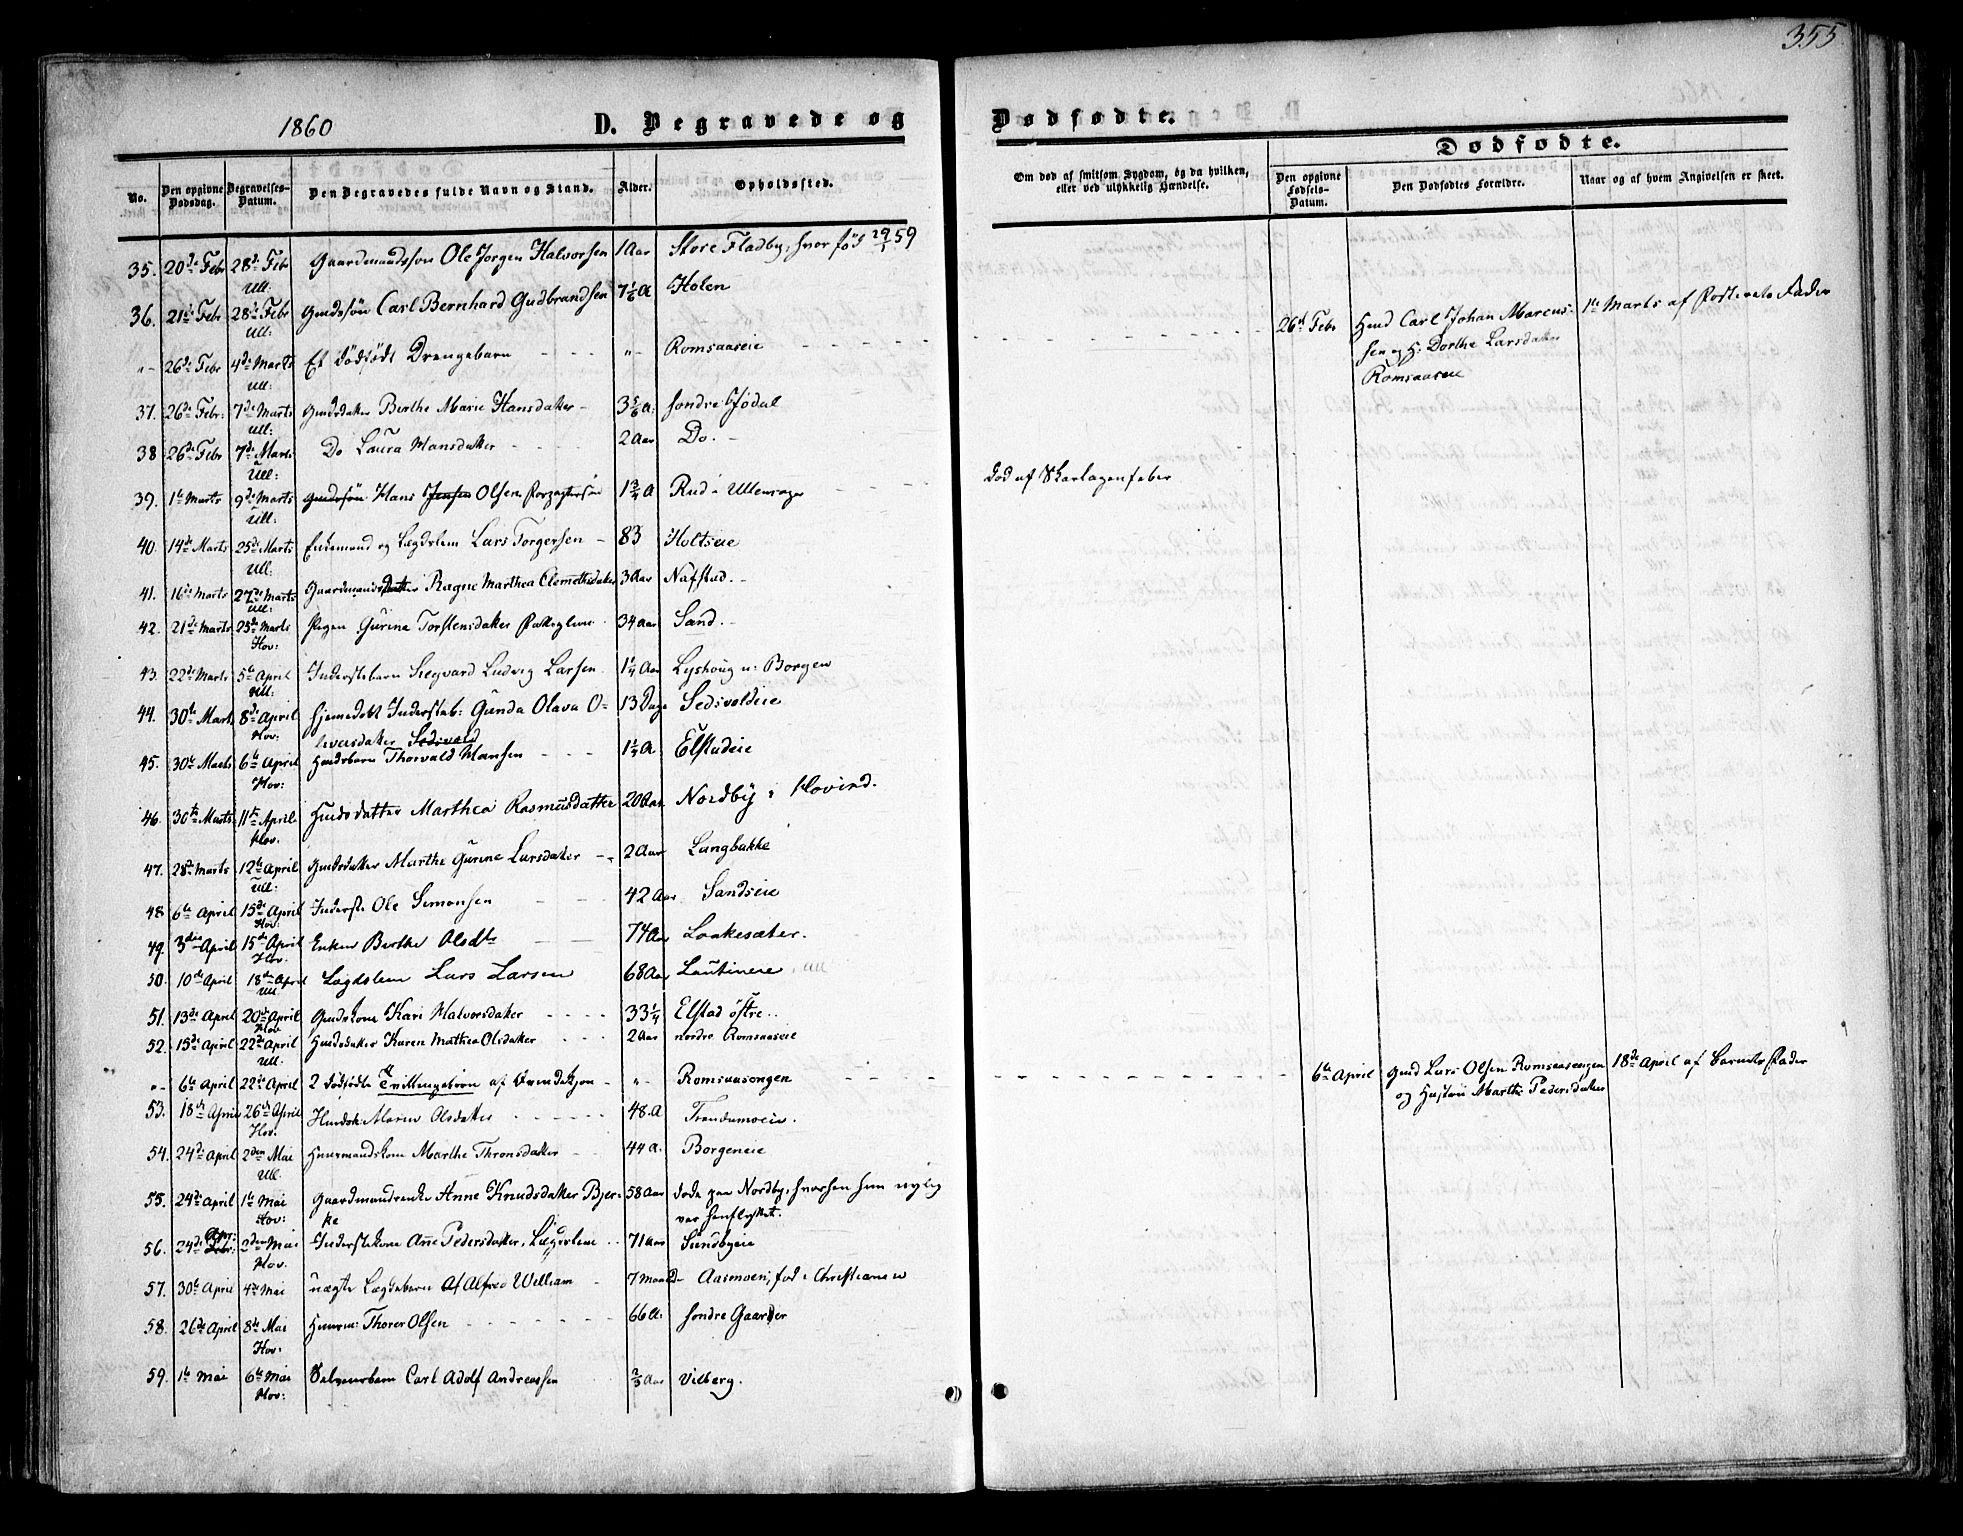 355
1860
D. Begravede og
Dødfødte.
Dødfødte.
No.
Den opgivne Dødsdag.
Begravelses-Datum.
Den Begravedes fulde Navn og Stand.
Alder.
Opholdssted.
Om død af smitsom Sygdom, og da hvilken, eller ved ulykkelig Hændelse.
Den opgivne Fødsels-Datum.
Den Dødfødtes Forældre.
Naar og af hvem Angivelsen er skeet.
35. 20de Febr 28de Febr Ull: Gaardmandssøn Ole Jørgen Halvorsen 1 Aar Store Fladby, hvor fød 29/1 59
36. 21de Febr 28de Febr Ull: Carl Bernhard Gudbrandsen 7 1/6 A Holen
"- 26de Febr 4de Marts Ull: Et dødfødt Drengebarn - - - "- Romsaaseie - - - 26de Febr Carl Johan Marcus- 1te Marts af Posterets Fader
sen og H. Dorthe Larsdatter
Romsaaseie
37. 26de Febr: 7de Marts Ull: Berthe Marie Hansdatter - 3 5/6 A: søndre Jødal
38 26de Febr 7de Marts Ull: Do Laura Hansdatter - - - 2 Aar Do. -
39. 1te Marts 9de Marts Ull: Hans Jensen Olsen 1 3/4 A Rud i Ullensager - - - død af Skarlagensfeber
40. 14de Marts 25de Marts Ull: og Lægdslem Lars Torgersen - 83 Holtseie
41. 16de Marts 27de Marts Ull: Gaardmandsdatter Ragne Marthea Clemetsdatter 3 Aar Nafstad. -
42. 21de Marts 25de Marts Hov: Pigen Gurine Torstensdatter 34 Aar Sand. -
43. 22de Marts 5te April Ull: Inderstebarn Siegvard Ludvig Larsen 1 1/4 Aar Lyshoug u: Borgen
44. 30te Marts 8de April Hov: hjemedøbt Inderstb: Gunda Olava O- 13 Dage Sedsvoldeie
liversdatter Sedsvold
45. 30te Marts 6te April Hov: Thorvald Hansen - - - 1 1/4 A: Elstadeie
46. 30te Marts 11te April Hov. Marthea Rasmusdatter 20 Aar Nordby i Hovind.
47. 28de Marts 12te April Ull: Marthe Gurine Larsdatter - 2 Aar Langbakke
48 6te April 15de April Hov: Inderste Ole Simonsen - - - 42 Aar Sandseie
49. 3die April 15de April Hov. Enken Berthe Olsdtr - - 74 Aar Laakesæter.
50. 10de April 18de April Ull Lægdslem Lars Larsen 68 Aar Ull
51. 13de April 20de April Hov Kari Halvorsdatter - - - 33 1/4 Elstad østre..
52. 15de April 22de April Ull. Karen Mathea Olsdatter - - - 2 Aar nordre Romsaaseie
"- 6te April 22de April 2 dødfødte Tvillingebørn af - "- Romsaasengen - - - 6te April Lars Olsen Romsaasengen 18de April af Barnets Fader
og Hustru Marthe Pedersdatter
53. 18de April 26de April Hov. Maren Olsdatter - - - 48. A
54. 24de April 2den Mai Ull. Huusmandskone Marthe Thronsdatter - - 44 A. Borgeneie
55. 24de April 1te Mai Hov: Gaardmandsenke Anne Knudsdatter Bjer- 58 Aar døde paa Nordby, hvorhen hun nylig
ke var henflyttet.
56. 24de Apr: Febr: 2den Mai Hov. Inderstekone Anne Pedersdatter, Lægdslem .. 71 Aar Sundbyeie
57. 30te April 4de Mai uægte Lægdebarn Alfred William - 7 Maaned Aasmoen, fød i Christiania
58. 26de April 8de Mai Hov: Thorer Olsen - - - 66 A: søndre Gaarder
59. 1te Mai 6te Mai Hov: Carl Adolf Andreassen 2/3 Aar Vilberg.